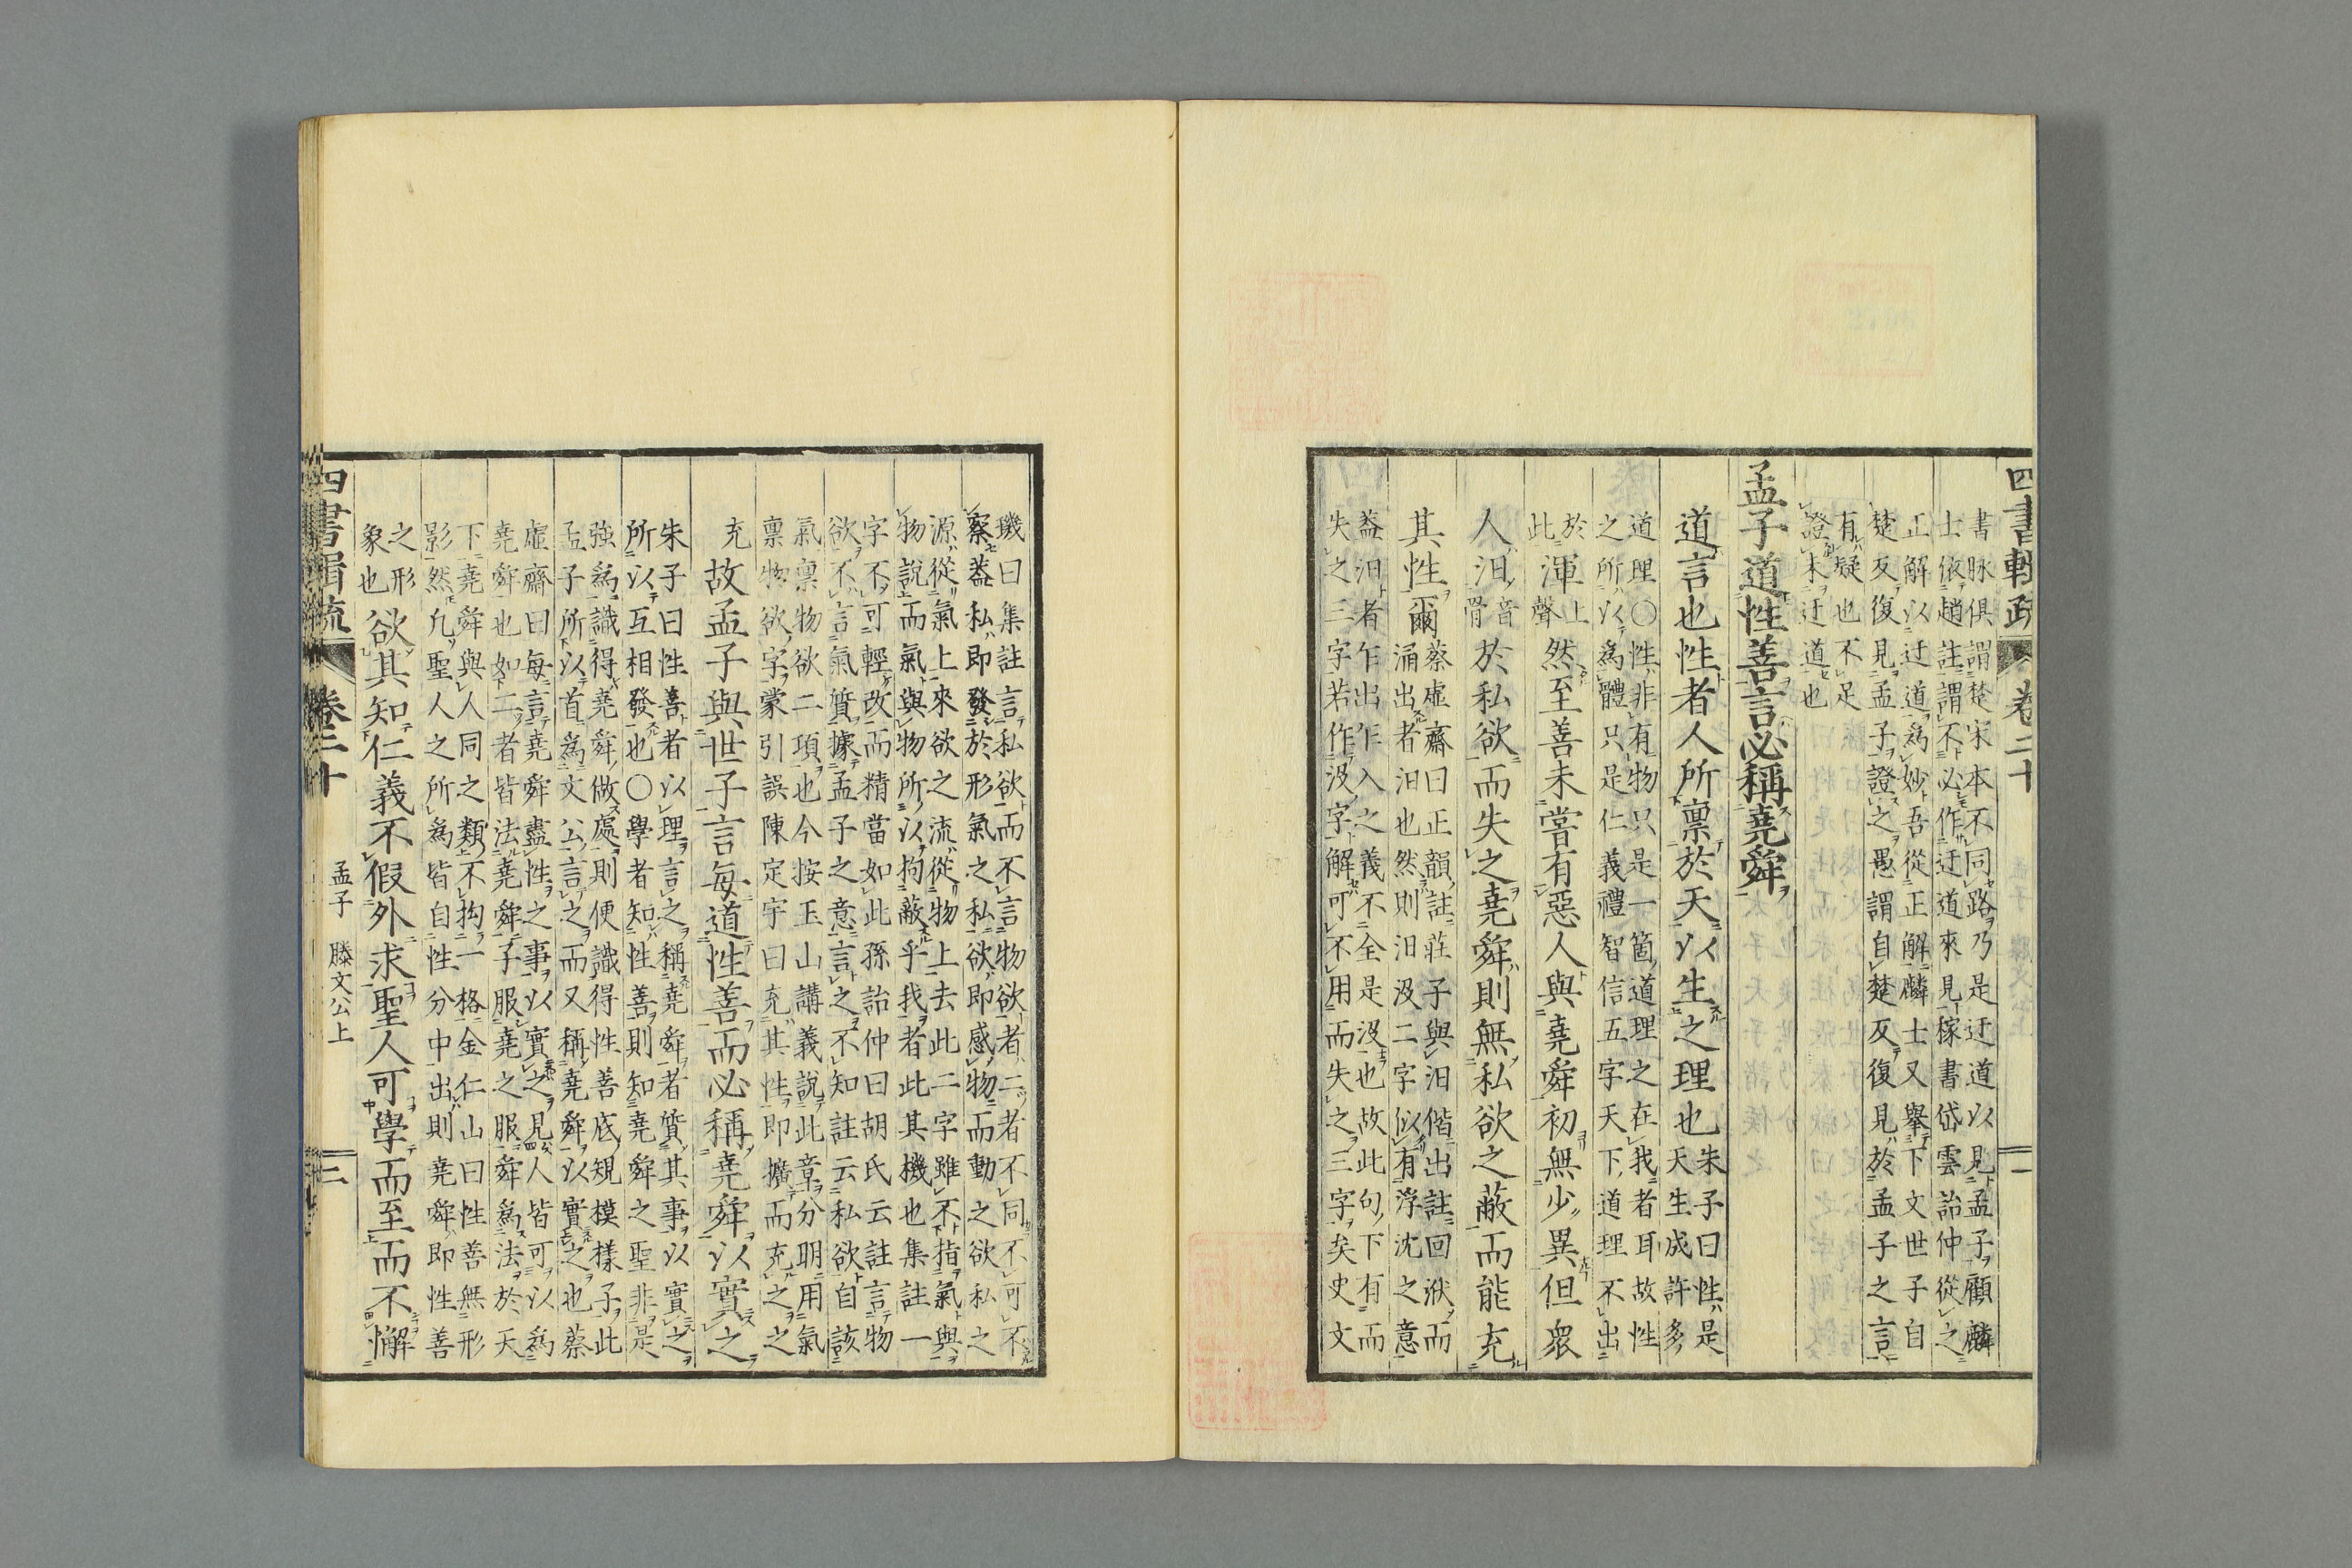 四書輯疏 卷二十 二
書脉俱謂楚宋本不同路乃是迂道以見孟子顧麟
士依趙註謂不必作迂道來見稼書岱雲詒仲從之
正解以迂道爲妙吾從正解麟士又擧下文世子自
楚反復見孟子證之愚謂自楚反復見於孟子之言
有疑也不足
證未迂道也
孟子道性善言必稱堯舜
道言也性者人所稟於天以生之理也
朱子曰性是
天生成許多
道理〇性非有物只是一箇道理之在我者耳故性
之所以爲體只是仁義禮智信五字天下道理不出
於
此
渾
上
聲
然至善未嘗有惡人與堯舜初無少異但衆
人汨
音
骨
於私欲而失之堯舜則無私欲之蔽而能充
其性爾
蔡虛齋曰正韻註莊子與汨偕出註回洑而
涌出者汨也然則汨汲二字似有浮沈之意
蓋汨者乍出乍入之義不全是沒也故此句下有而
失之三字若作汲字解可不用而失之三字矣史文
璣曰集註言私欲而不言物欲者二者不同不可不
察蓋私卽發於形氣之私欲卽感物而動之欲私之
源從氣上來欲之流從物上去此二字雖不指氣與
物說而氣與物所以拘蔽乎我者此其機也集註一
字不可輕改而精當如此孫詒仲曰胡氏云註言物
欲不言氣質據孟子之意言之不知註云私欲自該
氣稟物欲二項也今按玉山講義說此章分明用氣
稟物欲字蒙引誤陳定宇曰充其性卽擴而充之之
充
故孟子與世子言每道性善而必稱堯舜以實之
朱子曰性善者以理言之稱堯舜者質其事以實之
所以互相發也〇學者知性善則知堯舜之聖非是
強爲識得堯舜做處則便識得性善底規模樣子此
孟子所以首爲文公言之而又稱堯舜以實之也蔡
虛齋曰每言堯舜盡性之事以實之見人皆可以爲
堯舜也如二者皆法堯舜子服堯之服舜爲法於天
下堯舜與人同之類不拘一格金仁山曰性善無形
影然凡聖人之所爲皆自性分中出則堯舜卽性善
之形
象也
欲其知仁義不假外求聖人可學而至而不懈
四書輯疏 卷二十 孟子 滕文公上 三